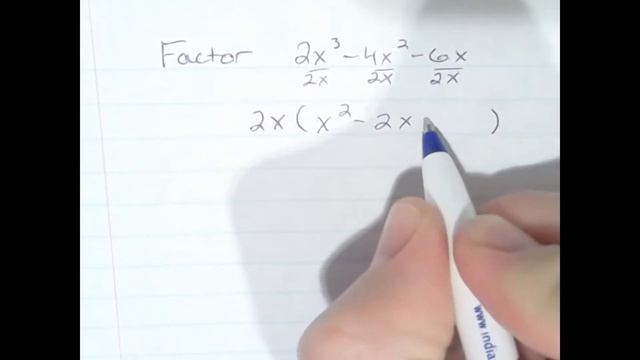 Factor 2x³ - 4x² - 6x
2x 2x 2x
2x ( x² - 2x )
www.india